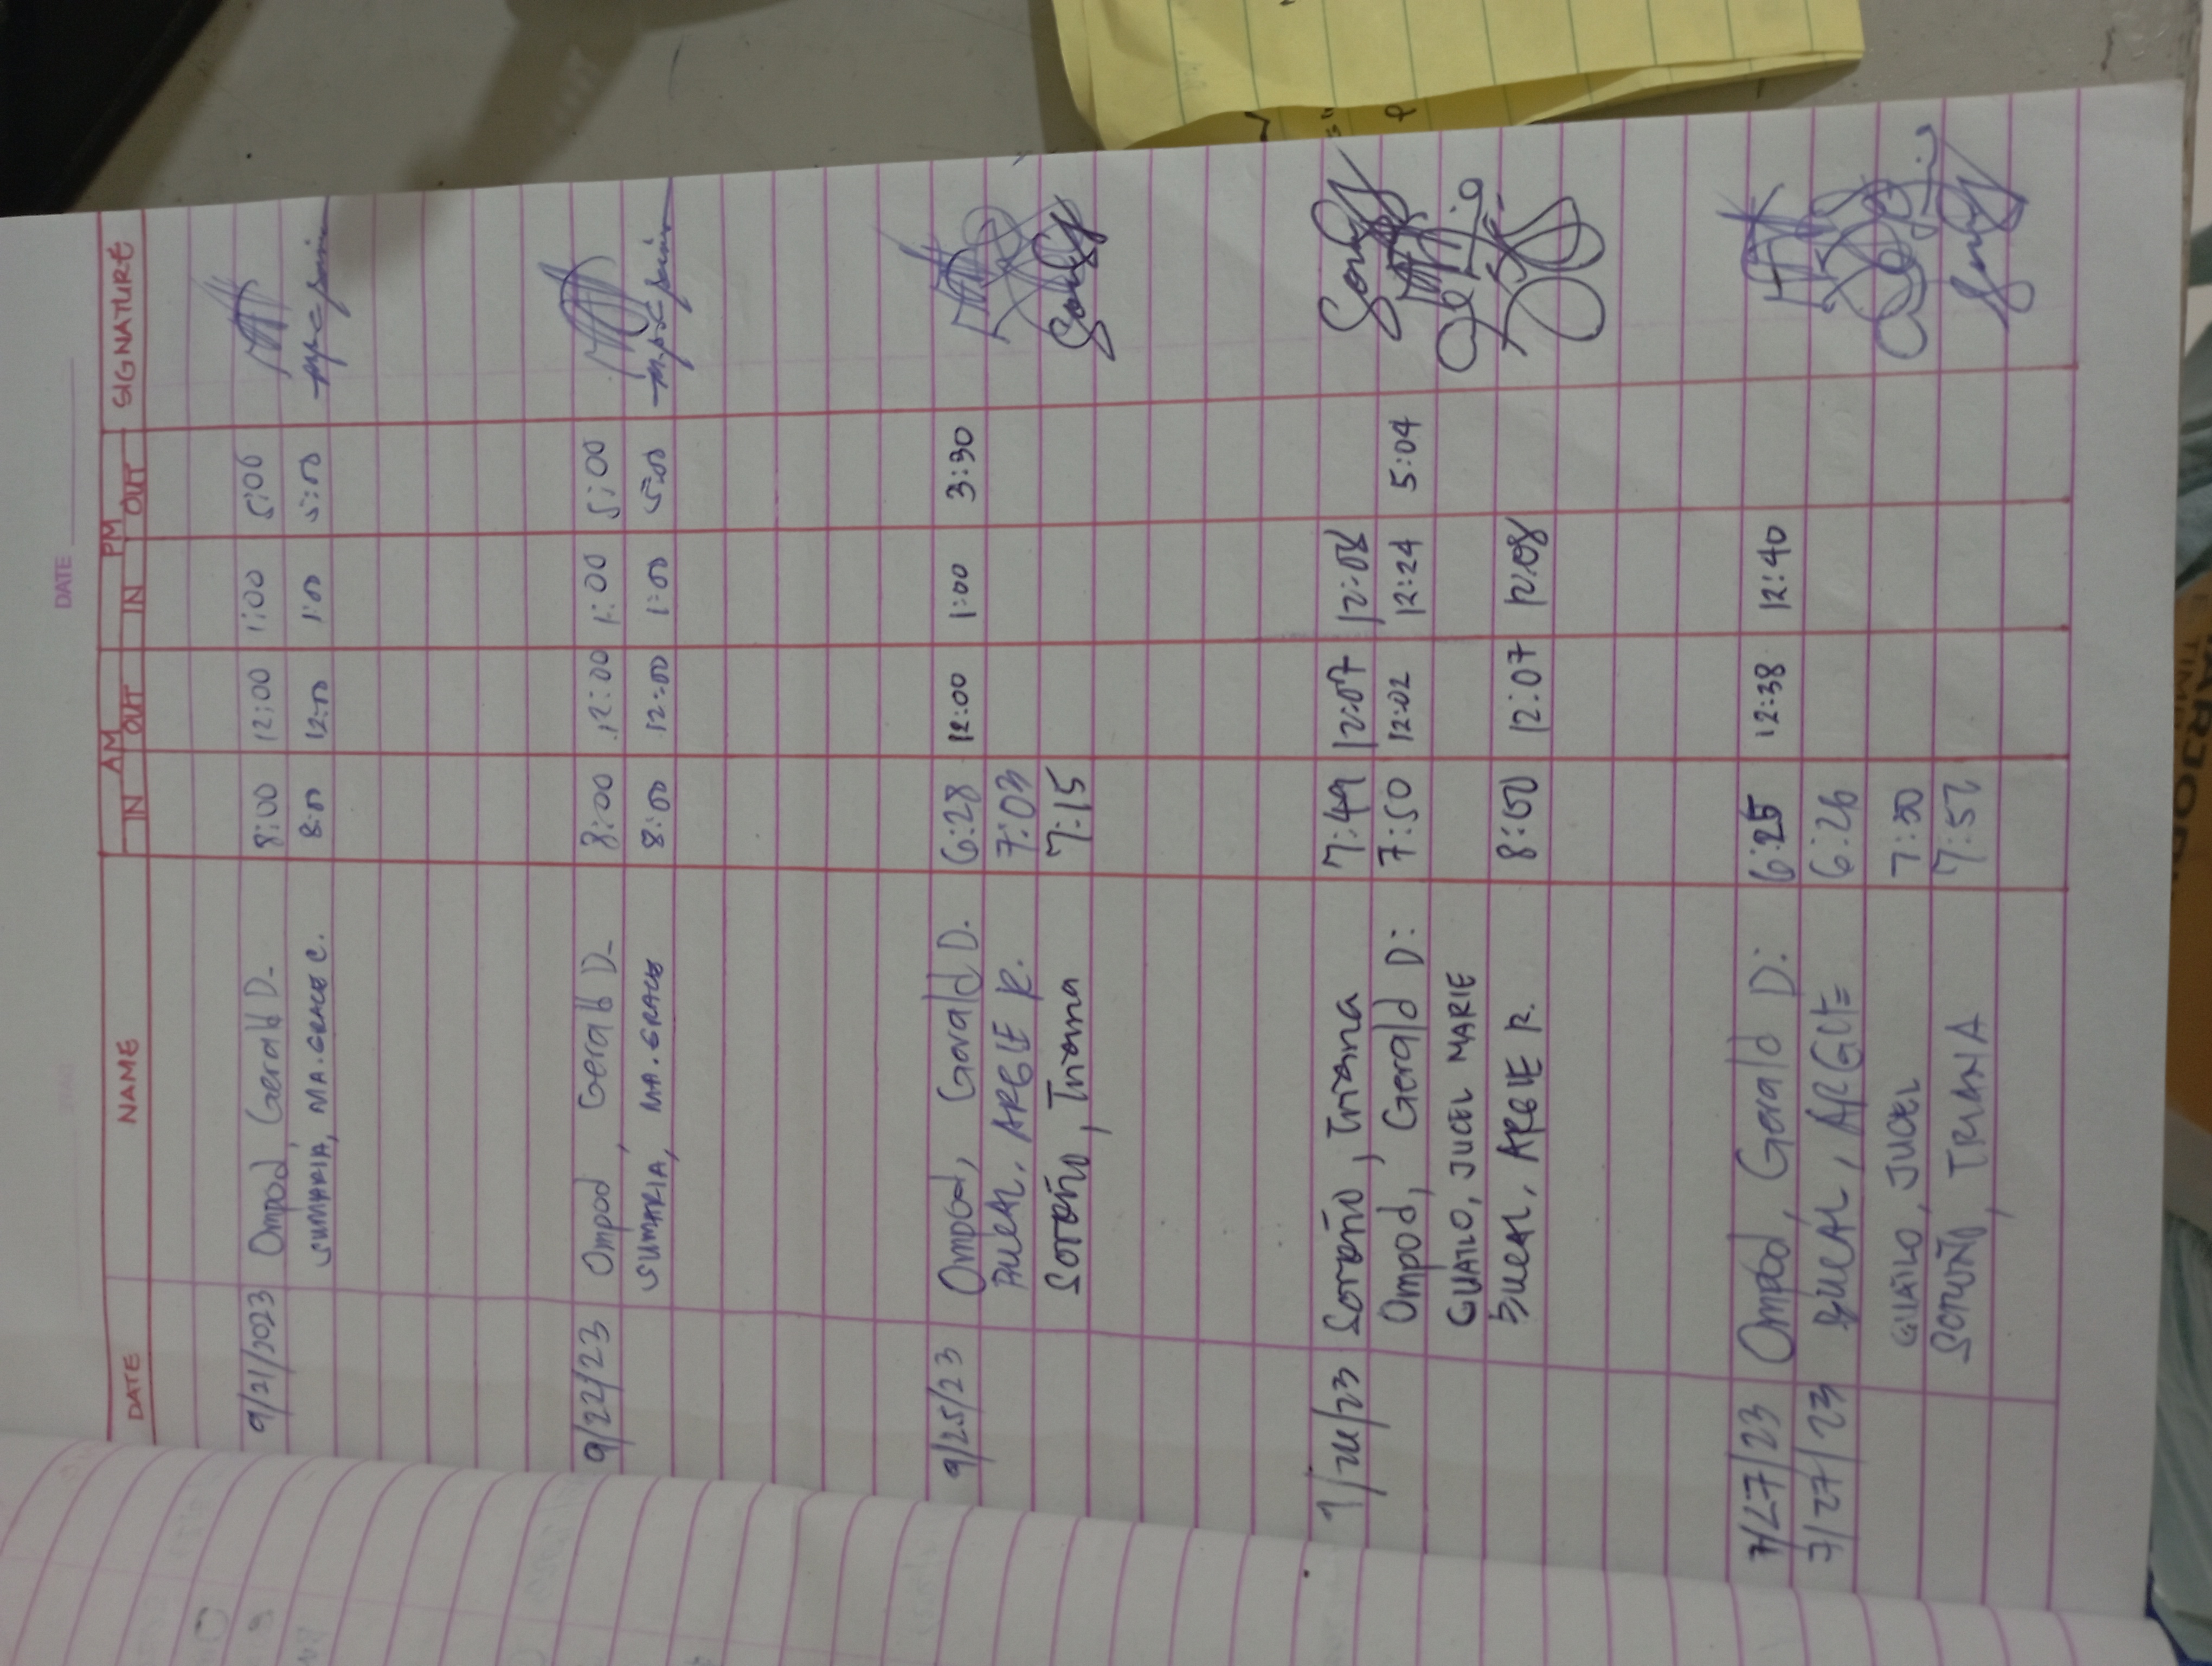 DATE
DATE NAME AM PM SIGNATURE
IN OUT IN OUT
9/21/2023 Ompod, Gerald D. 8:00 12:00 1:00 5:00
SUMARIA, MA. GRACE C. 8:00 12:00 1:00 5:00
9/22/23 Ompod, Gerald D. 8:00 12:00 1:00 5:00
SUMARIA, MA. GRACE 8:00 12:00 1:00 5:00
9/25/23 Ompod, Gerald D. 6:28 12:00 1:00 3:30
ARGIE R. 7:03
Soroño, Triana 7:15
Soroño, Triana 7:49 12:07 12:08
Ompod, Gerald D. 7:50 12:02 12:24 5:04
GUATLO, JUCEL MARIE
BUCAL, ARGIE R. 8:00 12:07 12:08
9/27/23 Ompod, Gerald D. 6:25 12:38 12:40
9/27/23 BUCAL, ARGIE 6:26
GUATLO, JUCEL 7:50
SOROÑO, TRIANA 7:52